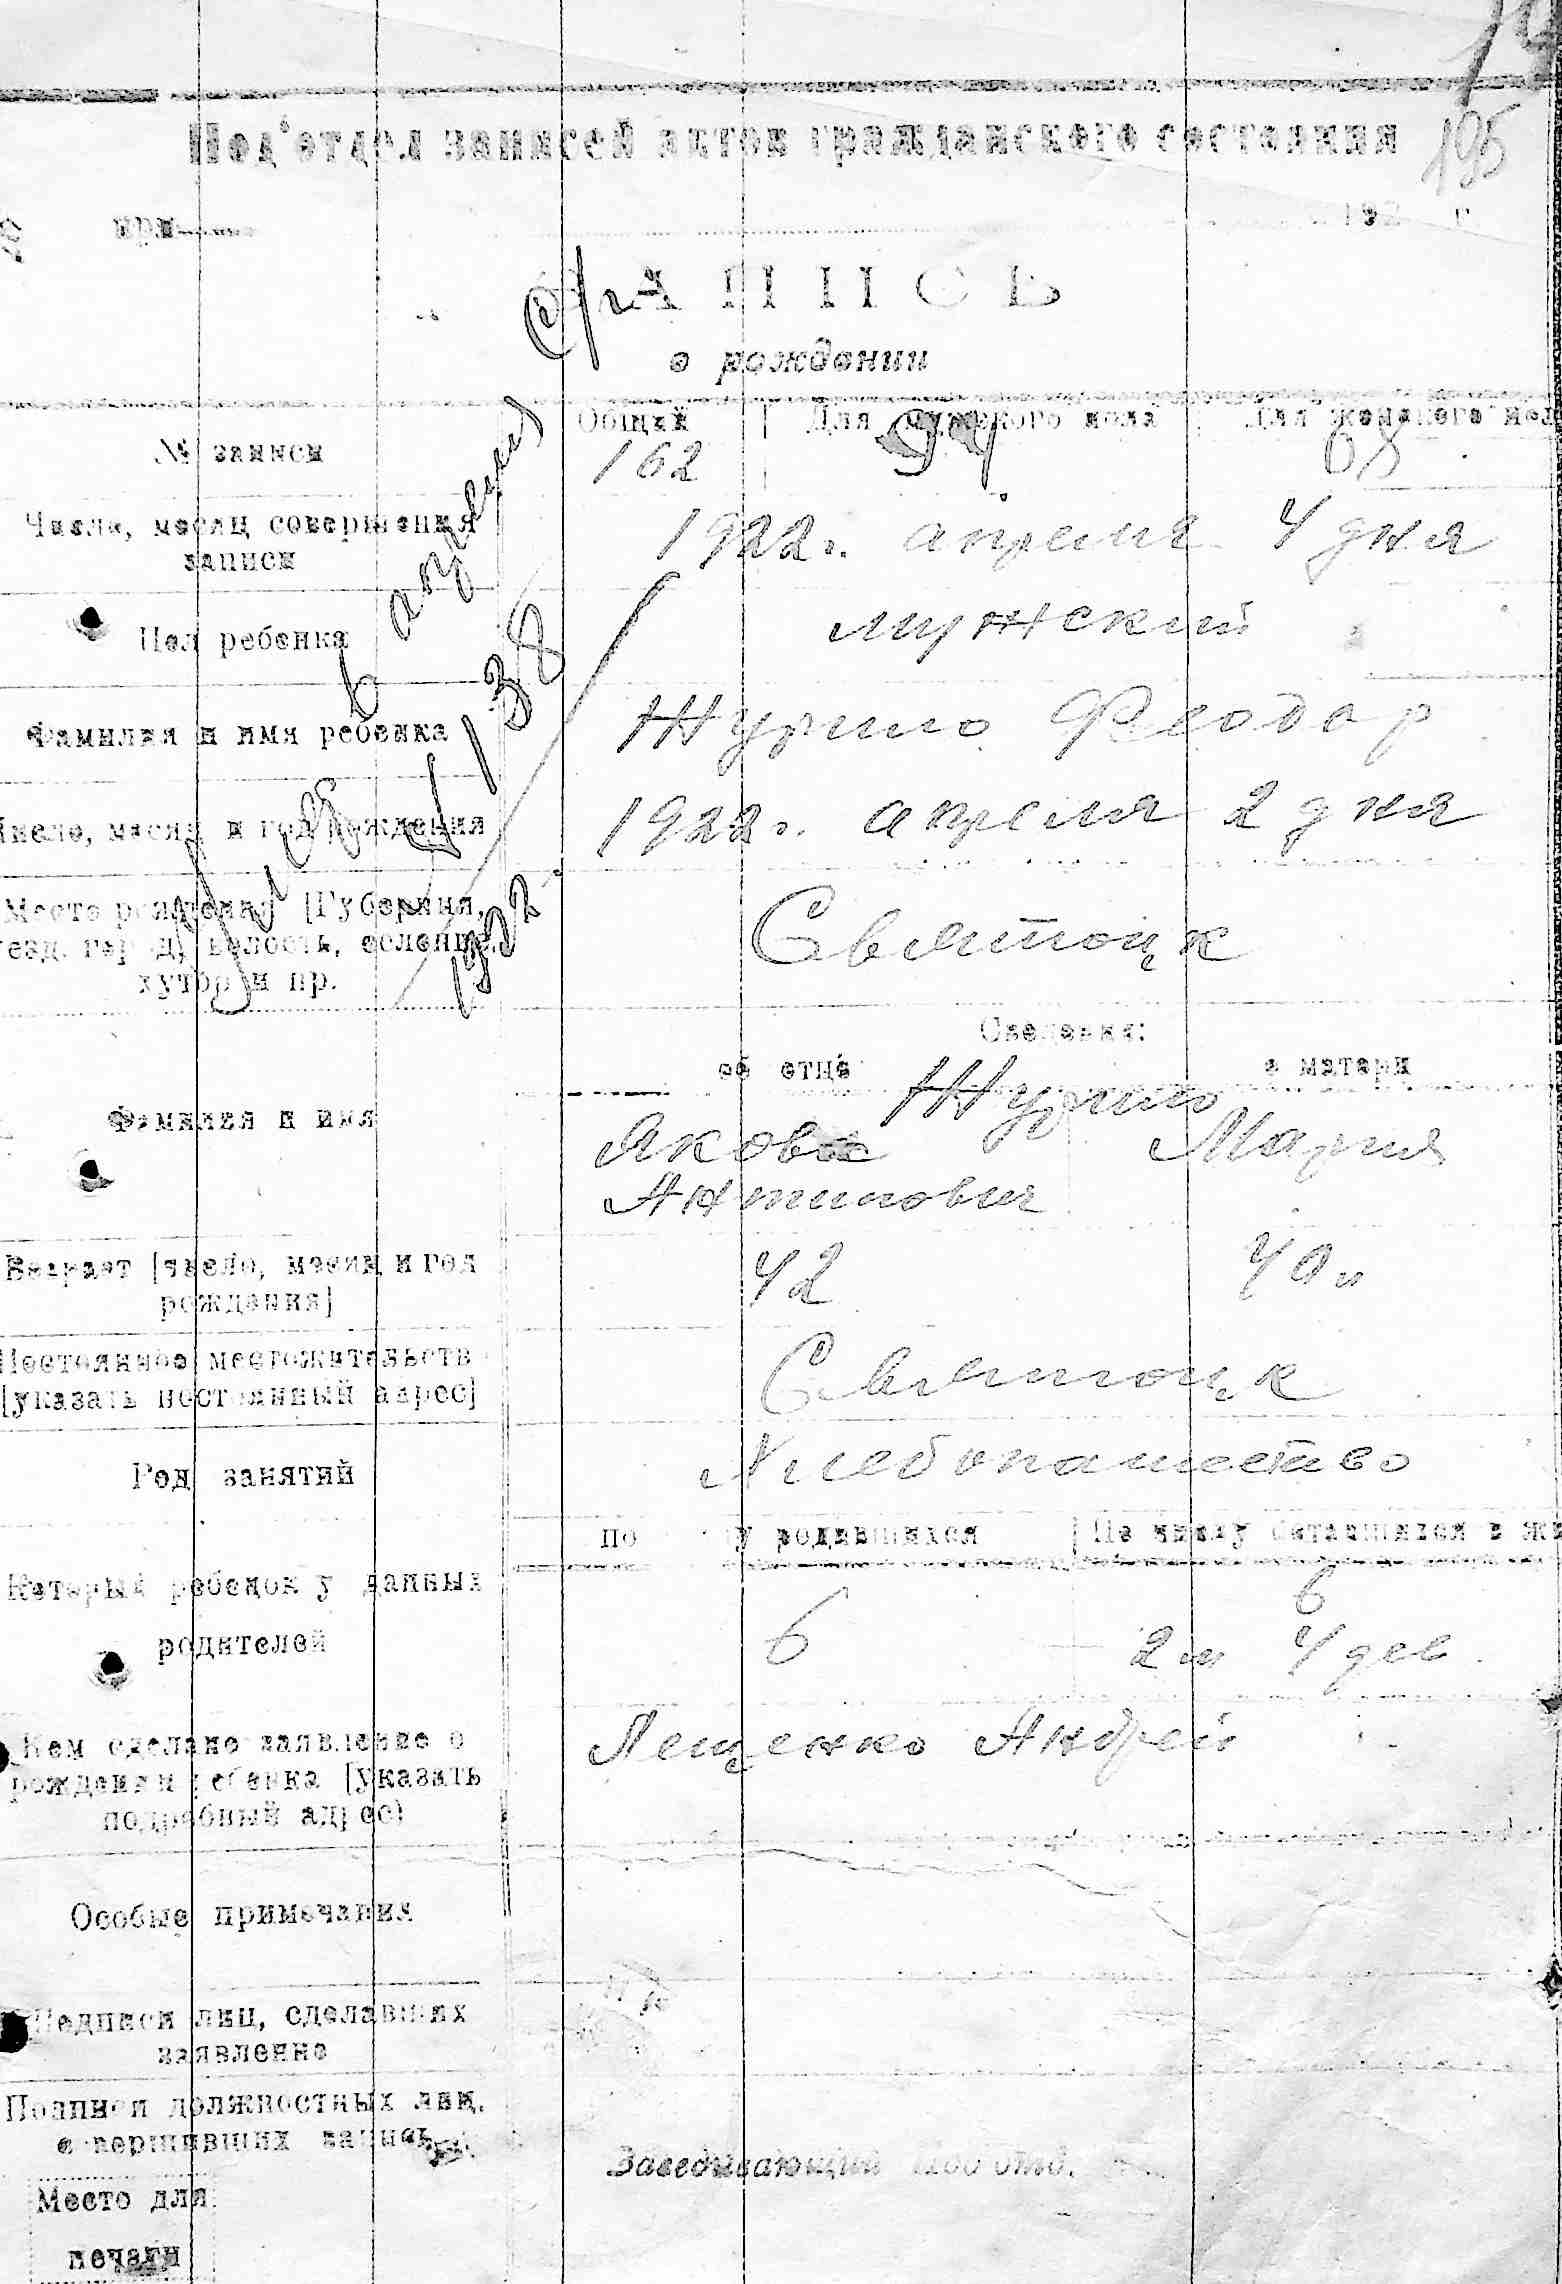 195
Под'отдел записей актов гражданского состояния
при 192 г.
ЗАПИСЬ
о рождении
№ записи
Общий Для мужского пола Для женского пол
162 94 68
Число, месяц совершения
записи
1922 г. апреля 4 дня
Пол ребенка
мужский
Фамилия и имя ребенка
Журило Феодор
Число, месяц и год рождения
1922 г. апреля 2 дня
Место рождения [Губерния,
уезд, город, волость, селение,
хутор и пр.
Святоцк
Сведения:
об отце о матери
Фамилия и имя
Журило
Яков Мария
Антипович
Возраст [число, месяц и год
рождения]
42 40 л
Постоянное местожительств
[указать постоянный адрес]
Святоцк
Род занятий
Хлебопашество
по у родившихся По числу оставшихся в жи
Который ребенок у данных
родителей
6 6
2 м 4 дев
Кем сделано заявление о
рождении ребенка [указать
подробный адрес)
Лещенко Андрей
Особые примечания
Подписи лиц, сделавших
заявление
Подписи должностных лиц,
совершивших запись
Заведывающий Под'отд.
Место для
печати